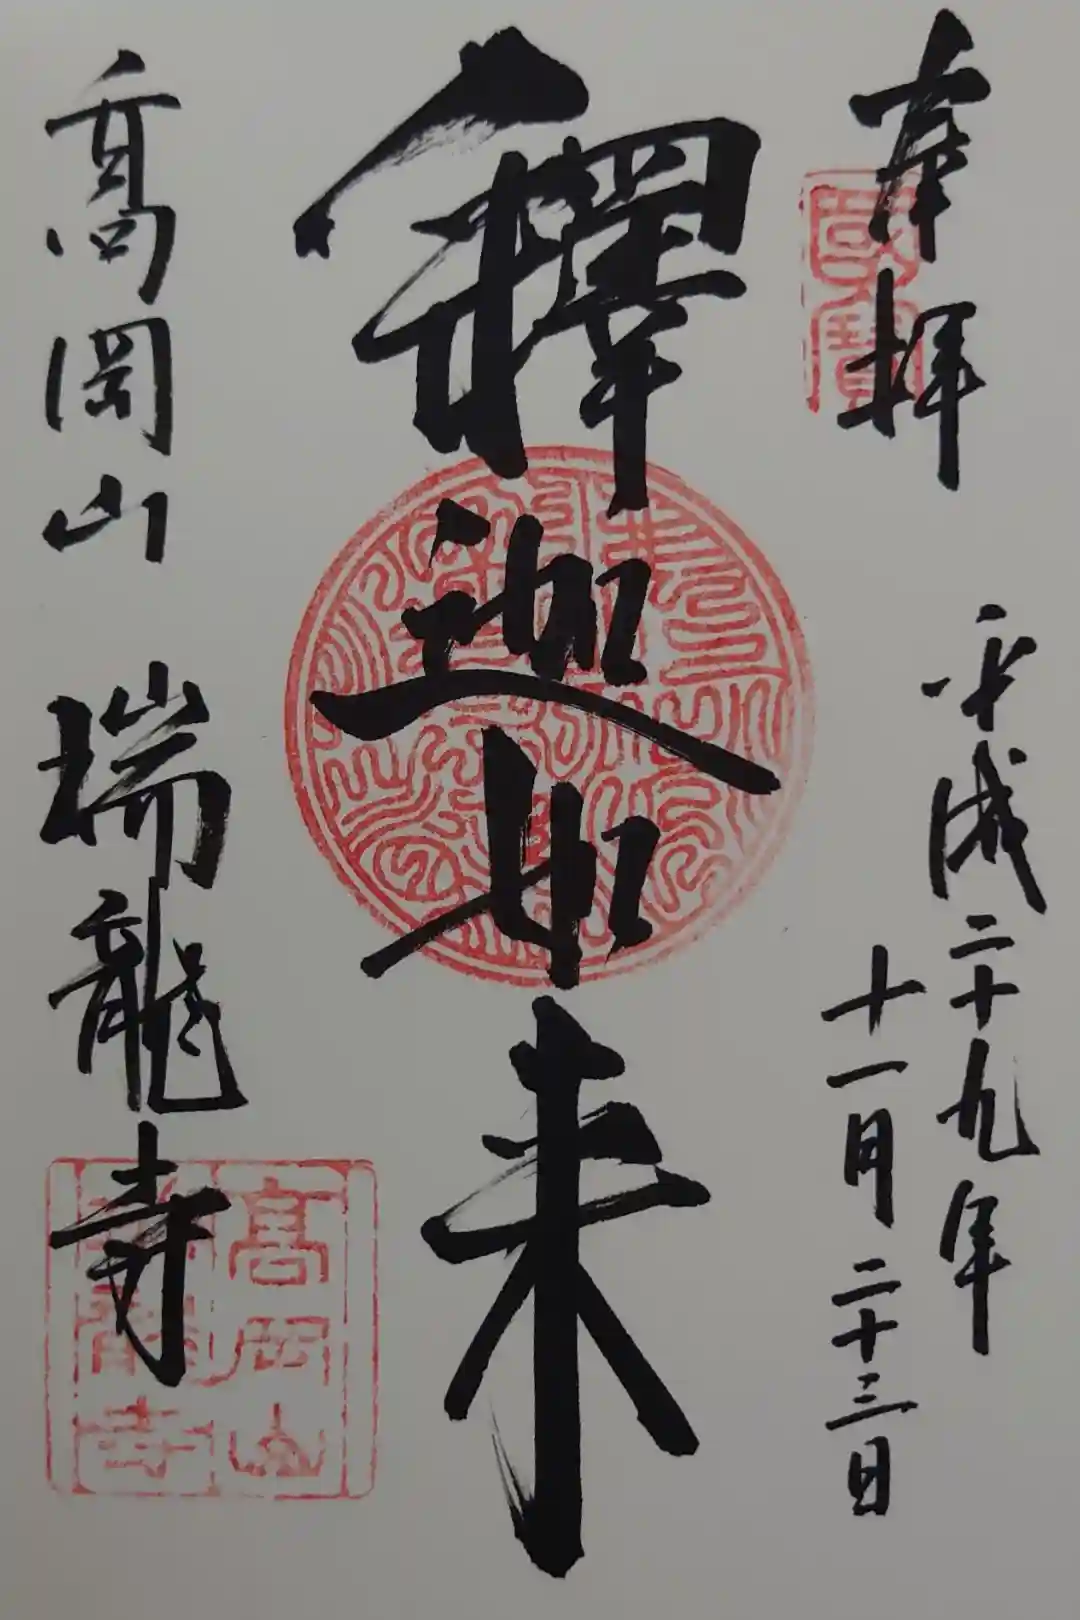 奉拝
國寶
平成二十九年
十一月二十三日
釋迦如来
高岡山 瑞龍寺
高岡山
瑞龍寺